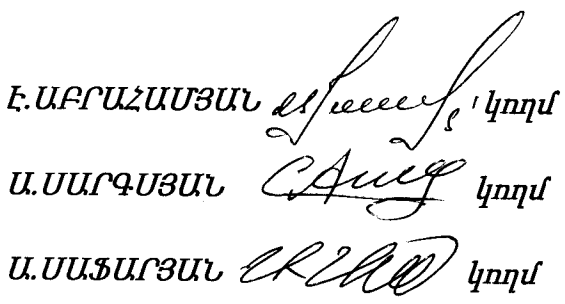 Է.ԱԲՐԱՀԱՄՅԱՆ կողմ
Ա.ՍԱՐԳՍՅԱՆ կողմ
Ա.ՍԱՖԱՐՅԱՆ կողմ